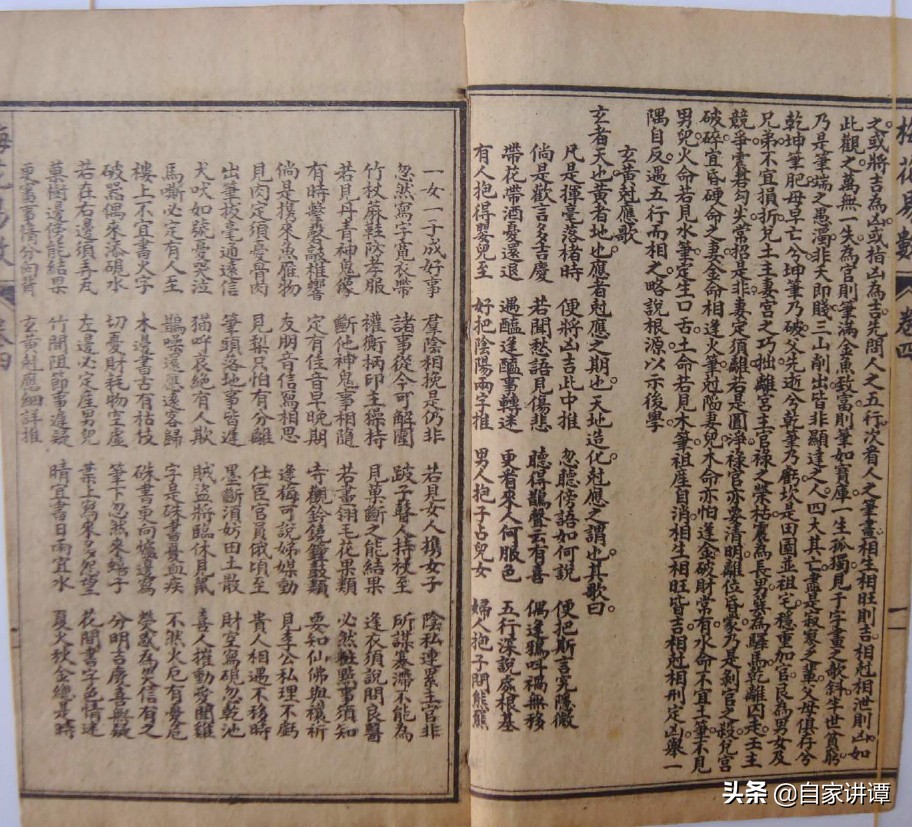 梅花易數 卷四 一
之或將吉為凶或指凶為吉先問人之五行次看人之筆畫相生相旺則吉相尅相泄則凶如
此觀之萬無一失為官則筆滿金魚致富則筆如寶庫一生孤獨見于字畫之歌斜半世貧窮
乃是筆端之愚濁非夭即賤三山削出皆非顯達之人四大其亡盡是寂寥之輩父母俱存兮
乾坤筆肥母早亡兮坤筆乃破父先逝兮乾筆乃虧坎是田園並祖宅穩重加官艮為男女及
兄弟不宜損折兌主主妻宮之巧拙離宮主官祿之榮枯震為長男巽為驛馬乾離囚走壬主
競爭震若勾尖常招是非妻定須離若是圓淨祿官亦要清明離位昏蒙乃是剝官之殺兌宮
破碎宜昏硬命之妻金命相逢火筆尅陷妻兒木命亦怕逢金破財常有水命不宜土筆不見
男兒火命若見水筆定生口舌土命若見木筆祖產自消相生相旺皆吉相尅相刑定凶舉一
隅自反遇五行而相之略說根源以示後學
玄黃尅應歌
玄者天也黃者地也應者尅應之期也天地造化尅應之謂也其歌曰
凡是揮毫落楮時 便將凶吉此中推 忽聽傍語如何說 便把斯言究隱微
倘是歡言多吉慶 若聞愁語見傷悲 聽得鵲聲云有喜 偶逢鴉叫禍無移
帶花帶酒憂還退 遇醯逢醢事轉迷 更看來人何服色 五行深說處根基
有人抱得嬰兒至 好把陰陽兩字推 男人抱子占兒女 婦人抱子問熊羆
一女一子成好事 羣陰相挽是仍非 若見女人擕女子 陰私連累主官非
忽然寫字寬衣帶 諸事從今可解圍 跛子瞽人持杖至 所謀蹇滯不能為
竹杖蔴鞋防孝服 權衡柄印主操持 見菓斷之能結果 逢衣須說問良醫
若見丹青神鬼像 斷他神鬼事相隨 若畫翎毛花果類 必然粧點事須知
有時擊磬敲椎響 定有佳音早晚期 寺觀鈴鐃鐘鼓類 要知仙佛與禳祈
倘是擕來魚雁物 友朋音信寫相思 逢梅可說婦媒動 見李公私理不虧
見肉定須憂骨肉 見梨只怕有分離 仕臣官員俄頃至 貴人相遇不移時
出筆拔毫通遠信 筆頭落地事皆遲 墨斷須妨田土散 財空寫硯忽乾池
犬吠如號憂哭泣 猫呼哀絕有人欺 賊盜將臨休見鼠 喜人摧動愛聞雞
馬嘶必定有人至 鵲噪還應遠客歸 字是硃書憂血疾 不然火厄有憂危
樓上不宜書火字 木邊書古有枯枝 硃書更向爐邊寫 熒惑為災信有之
破器偶來添硯水 切憂財耗物空虛 筆下忽然來蟢子 分明吉慶喜無疑
若在右邊須弄瓦 左邊必定產男兒 葉上寫來多怨望 花間書字色情迷
菓樹邊停能結果 竹間阻節事遲疑 晴宜書日雨宜水 夏火秋金總是時
更審事情分向背 玄黃尅應細詳推
梅花易數 卷四
头条 @自家讲谭